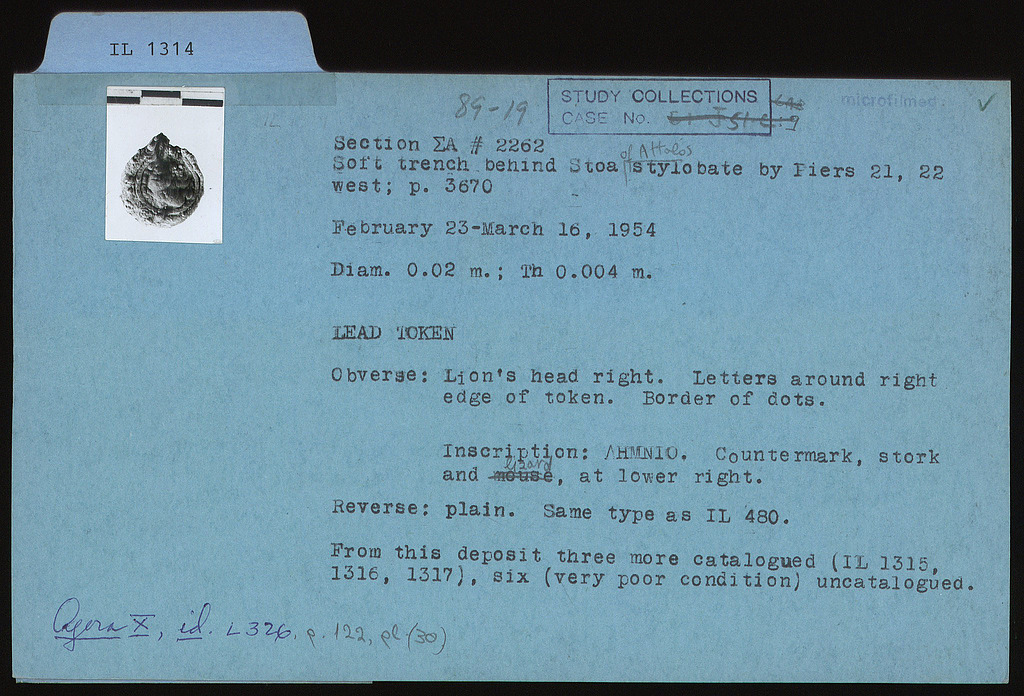 IL 1314
89-19
STUDY COLLECTIONS
CASE No.
microfilmed.
IL
Section ΣΑ # 2262
of Attalos
Soft trench behind Stoa stylobate by Piers 21, 22
west; p. 3670
February 23-March 16, 1954
Diam. 0.02 m.; Th 0.004 m.
LEAD TOKEN
Obverse: Lion's head right. Letters around right
edge of token. Border of dots.
Inscription: ΛΗΜΝΙΟ. Countermark, stork
lizard
and mouse, at lower right.
Reverse: plain. Same type as IL 480.
From this deposit three more catalogued (IL 1315,
1316, 1317), six (very poor condition) uncatalogued.
Agora X, id. L 326, p. 122, pl (30)